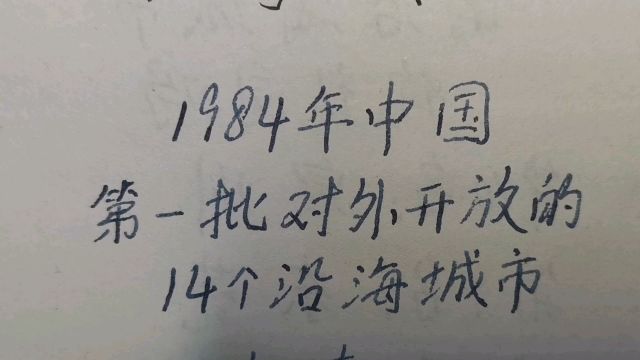 1984年中国
第一批对外开放的
14个沿海城市